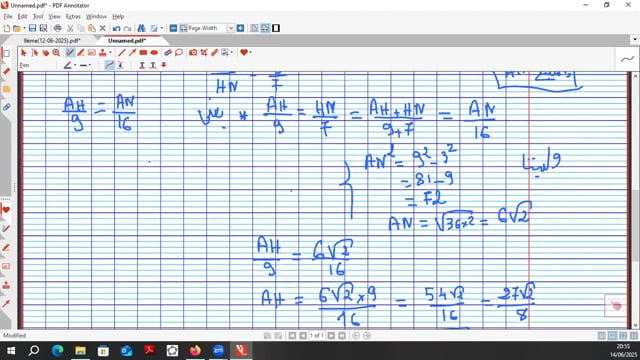 Unnamed.pdf* - PDF Annotator
File Edit View Go Tool Extras Window Help
Page Width
11ème(12-06-2025).pdf* Unnamed.pdf*
Pen
HN 7
AH/9 = AN/16 * AH/9 = HN/7 = AH+HN/9+7 = AN/16
AN² = 9² - 3²
= 81 - 9
= 72
AN = √36×2 = 6√2
AH/9 = 6√2/16
AH = 6√2×9/16 = 54√2/16 = 27√2/8
Modified
1 of 1
20:55
14/06/2025